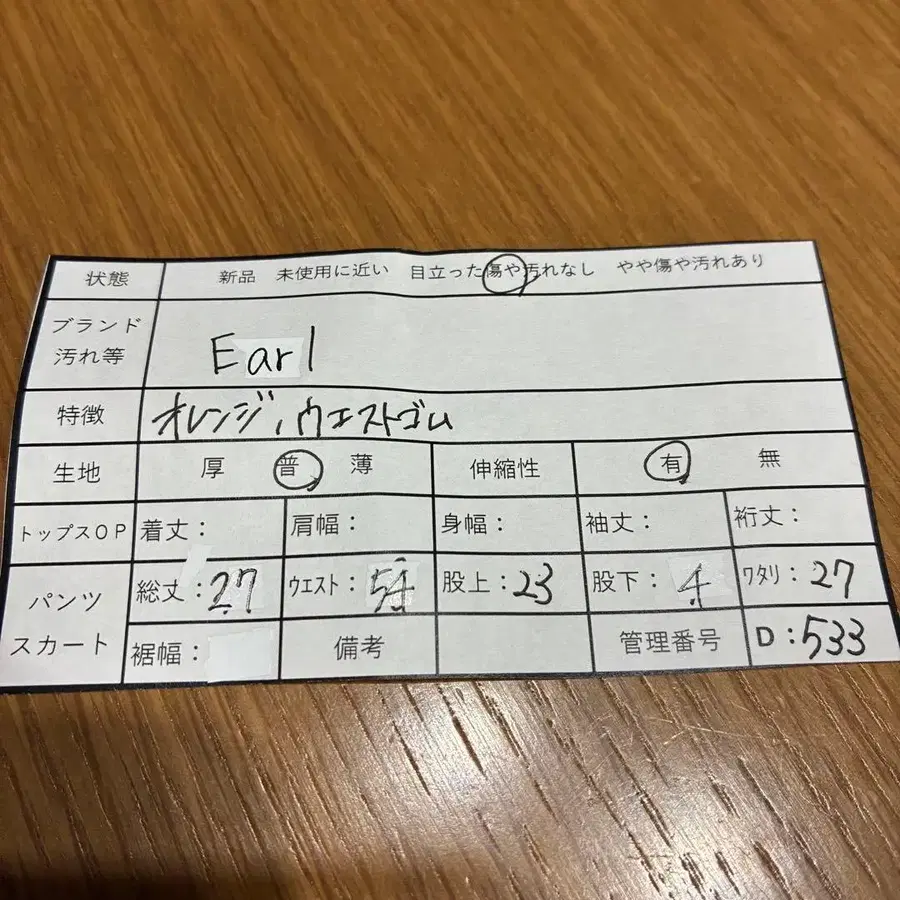 状態 新品 未使用に近い 目立った傷や汚れなし やや傷や汚れあり
ブランド
汚れ等
Earl
特徴 オレンジ、ウエストゴム
生地 厚 普 薄 伸縮性 有 無
トップスOP 着丈: 肩幅: 身幅: 袖丈: 裄丈:
パンツ
スカート
総丈:27 ウエスト:54 股上:23 股下:4 ワタリ:27
裾幅: 備考 管理番号 D:533